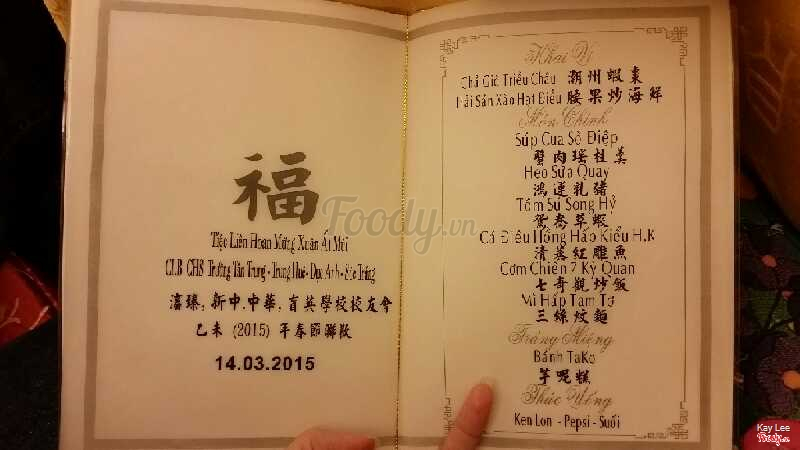 福
Tiệc Liên Hoan Mừng Xuân Ất Mùi
CLB CHS Trường Tân Trung - Trung Huê - Dục Anh - Sóc Trăng
瀋臻, 新中, 中華, 育英學校校友會
乙未 (2015) 年春節聯歡
14.03.2015
Khai Vị
Chả Giò Triều Châu 潮州蝦棗
Hải Sản Xào Hạt Điều 腰果炒海鮮
Món Chính
Súp Cua Sò Điệp
蟹肉瑤柱羹
Heo Sữa Quay
鴻運乳豬
Tôm Sú Song Hỷ
鴛鴦草蝦
Cá Điêu Hồng Hấp Kiểu H.K
清蒸紅雕魚
Cơm Chiên 7 Kỳ Quan
七奇觀炒飯
Mì Hấp Tam Tơ
三絲炆麵
Tráng Miệng
Bánh TaKo
芋呢糕
Thức Uống
Ken Lon - Pepsi - Suối
Foody.vn
Kay Lee
Foody.vn